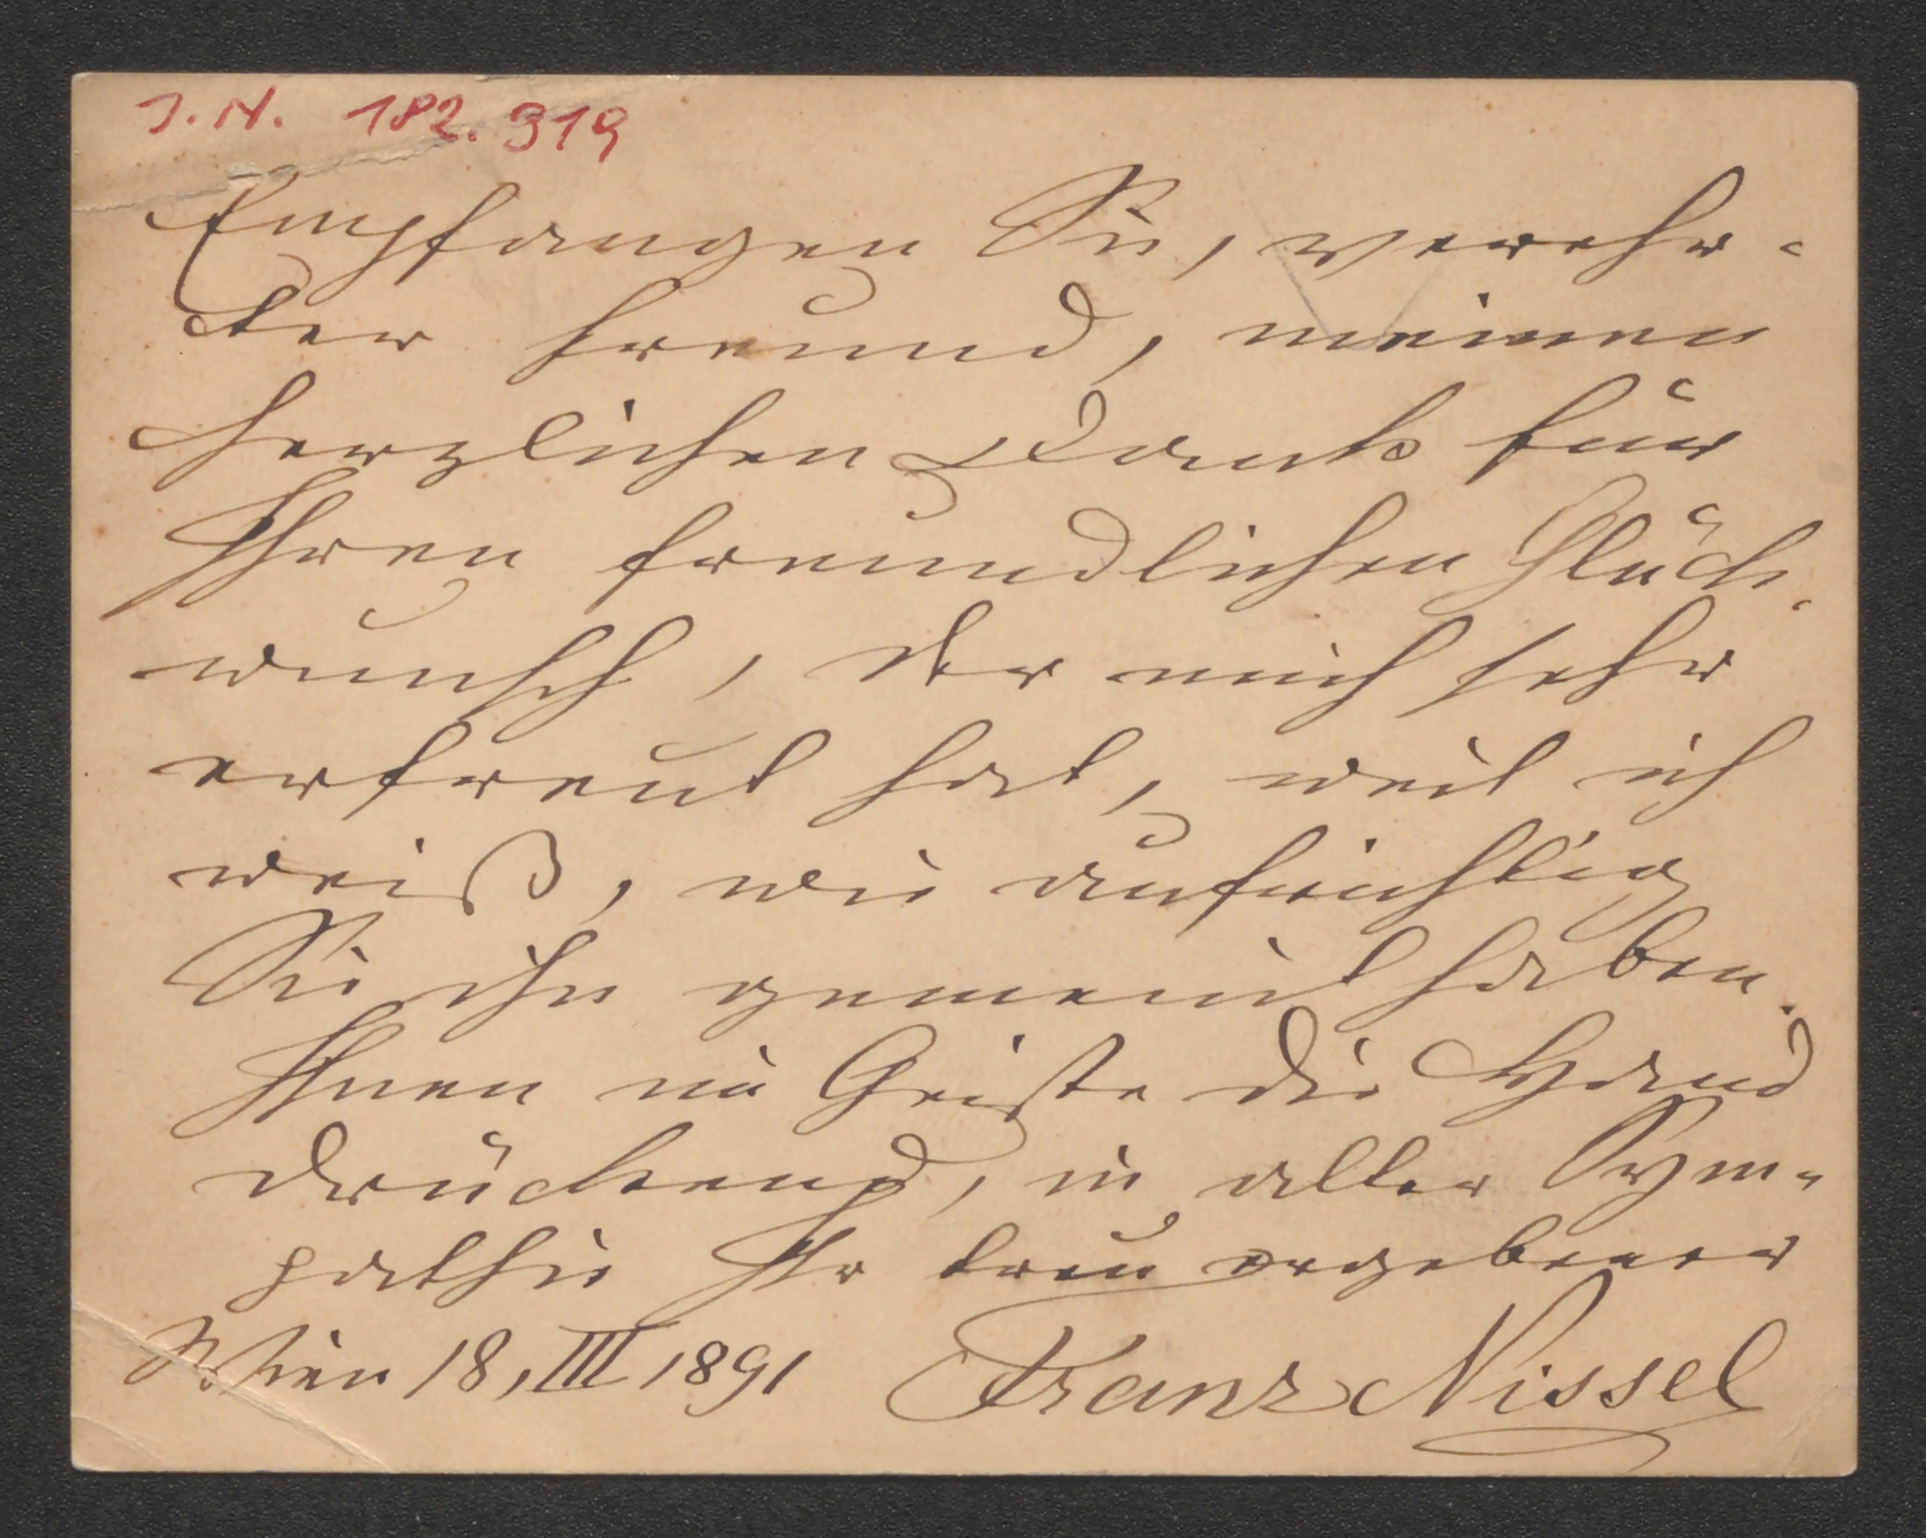 J.N. 182.319
Empfangen Sie, verehr-
ter Freund, meinen
herzlichen Dank für
Ihren freundlichen Glück-
wunsch, der mich sehr
erfreut hat, weil ich
weiß, wie aufrichtig
Sie ihn gemeint haben.
Ihnen im Geiste die Hand
drückend, in aller Sym-
pathie Ihr treu ergebener
Wien 18, III 1891 Franz Nissel